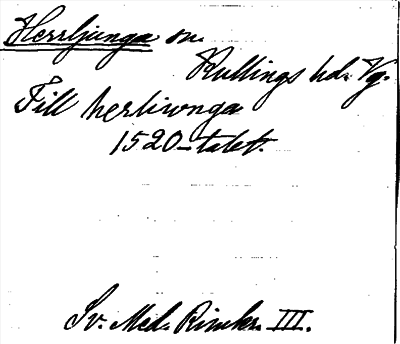 Herrljunga sn.
Kullings hd. Vg.
Till herliwnga
1520-talet.
Sv. Med. Rimkr. III.